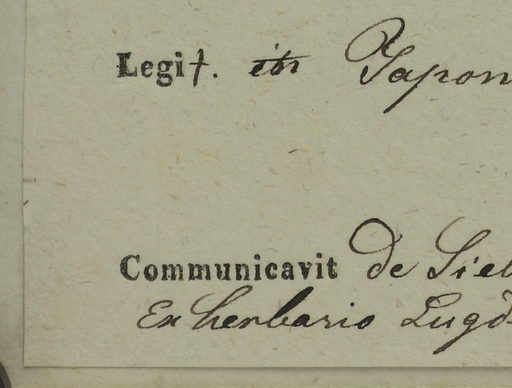 Legit. in Japon
Communicavit de Sieb
Ex herbario Lugd